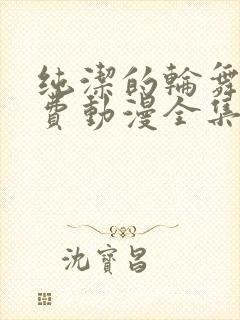 纯潔的輪舞
費動漫全集
沈寶昌